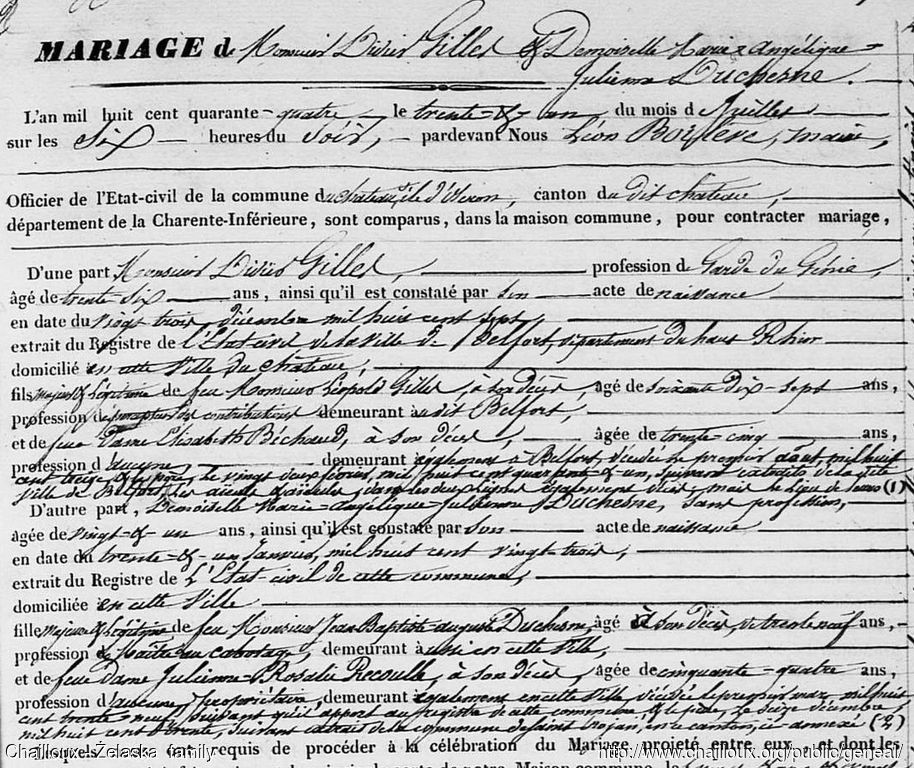 MARIAGE de Monsieur Didier Gilles & Demoiselle Marie-Angélique-
Julienne Duchesne.
L'an mil huit cent quarante-quatre le trente-&-un du mois d Juillet
sur les Six heures du Soir, pardevant Nous Léon , maire,
Officier de l'Etat-civil de la commune du château, île d'Oleron, canton du dit château,
département de la Charente-Inférieure, sont comparus, dans la maison commune, pour contracter mariage,
D'une part Monsieur Didier Gilles, profession de Garde du Génie,
âgé de trente-six ans, ainsi qu'il est constaté par son acte de naissance
en date du vingt-trois décembre mil huit cent sept,
extrait du Registre de l'Etat civil de la ville de Belfort, département du haut Rhin
domicilié en cette Ville du château,
fils majeur & légitime de feu Monsieur Léopold Gilles, à son décès, âgé de soixante dix-sept ans,
profession de percepteur des contributions demeurant audit Belfort,
et de feue Dame Elisabeth Béchaud, à son décès, âgée de trente-cinq ans,
profession d'aucune, demeurant également à Belfort, décédés le premier août mil huit
cent treize, & le père, le vingt deux février, mil huit cent quarante-&-un, suivant extraits de la dite
Ville de Belfort, les aieuls & aieules, dans les deux lignes également décédés, mais le lieu de leurs (1)
D'autre part, Demoiselle Marie-Angélique-Julienne Duchesne, sans profession,
âgée de vingt-&-un ans, ainsi qu'il est constaté par son acte de naissance
en date du trente-&-un Janvier, mil huit cent vingt-trois,
extrait du Registre de L'Etat-civil de cette commune,
domiciliée en cette Ville
fille majeure & légitime de feu Monsieur Jean Baptiste-auguste Duchesne âgé à son décès, de trente neuf ans,
profession de Maître au cabotage, demeurant aussi en cette Ville,
et de feue Dame Julienne-Rosalie Recoulle, à son décès, âgée de cinquante-quatre ans,
profession d'aucune, propriétaire, demeurant également en cette Ville décédée le premier mars mil huit
cent trente-neuf, suivant qu'il appert au registre de cette commune & le père, le seize décembre,
mil huit cent trente, suivant extrait de la commune de Saint Trojan, en ce canton, ci-annexé (2)
Lesquels nous ont requis de procéder à la célébration du Mariage projeté entre eux, et dont les
Chailloux-Zelaska family
http://www.chailloux.org/public/geneal/